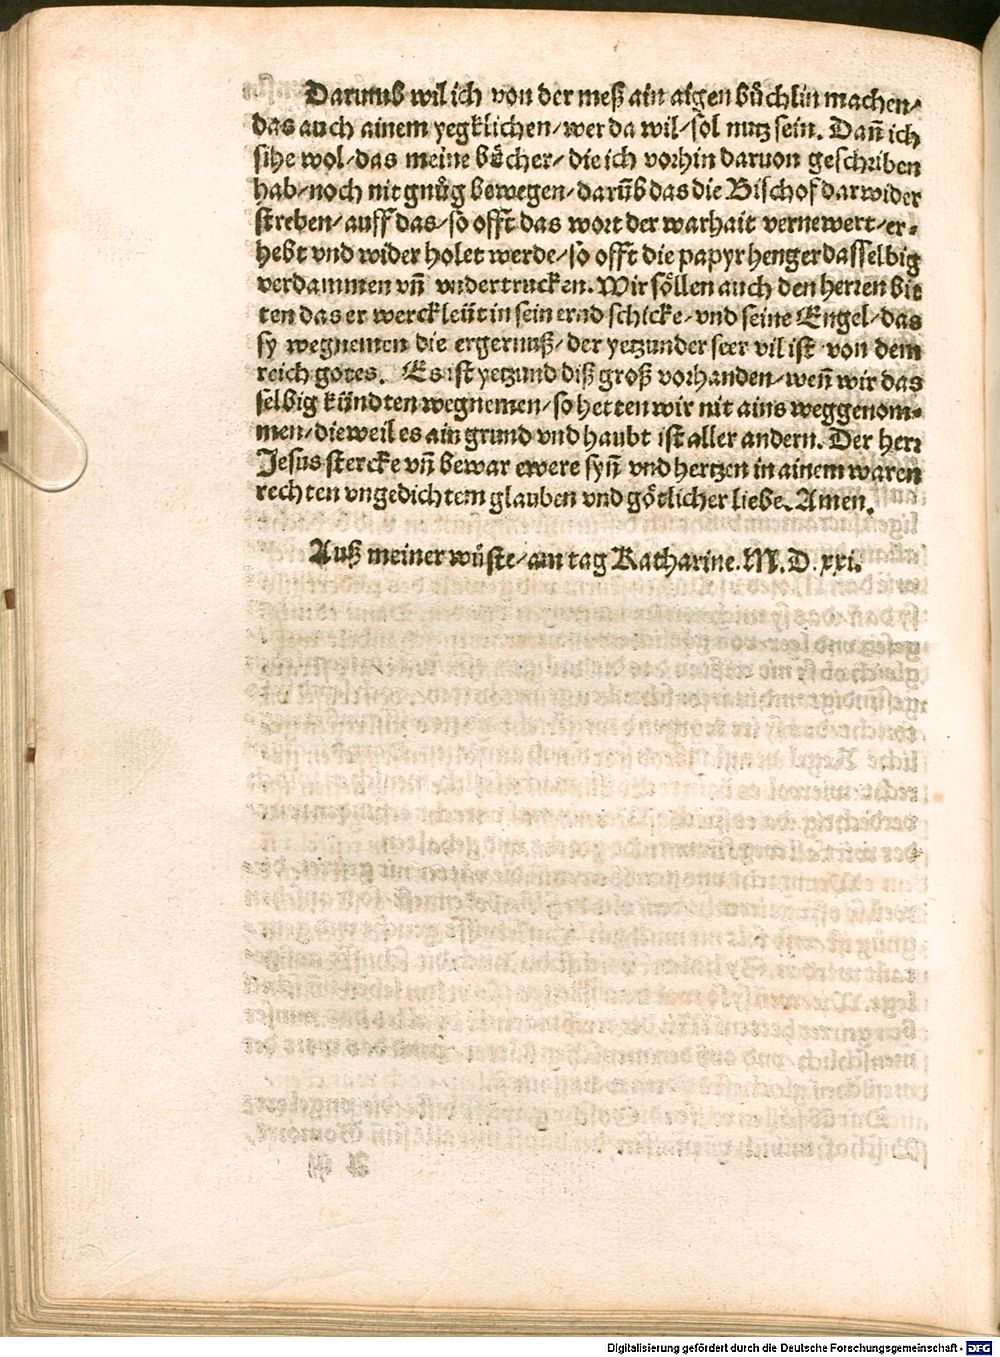 Darumb wil ich von der meß ain aigen bůchlin machen/
das auch ainem yegklichen/wer da wil/sol nutz sein. Dañ ich
sihe wol/das meine bůcher/die ich vorhin daruon geschriben
hab/noch nit gnůg bewegen/darũb das die Bischof darwider
streben/auff das/so offt das wort der warhait vernewert/er⸗
hebt vnd wider holet werde/so offt die papyr henger dasselbig
verdammen vñ vndertrucken. Wir söllen auch den herren bit
ten das er werckleüt in sein ernd schicke/vnd seine Engel/das
sy wegnemen die ergernuß/der yetzunder seer vil ist von dem
reich gotes. Es ist yetzund diß groß vorhanden/weñ wir das
selbig kündten wegnemen/so hetten wir nit ains weggenom⸗
men/dieweil es ain grund vnd haubt ist aller andern. Der herr
Jesus stercke vñ bewar ewere syñ vnd hertzen in ainem waren
rechten vngedichtem glauben vnd götlicher liebe. Amen.
Auß meiner wüste/am tag Katharine. M. D. xxi.
Digitalisierung gefördert durch die Deutsche Forschungsgemeinschaft - DFG